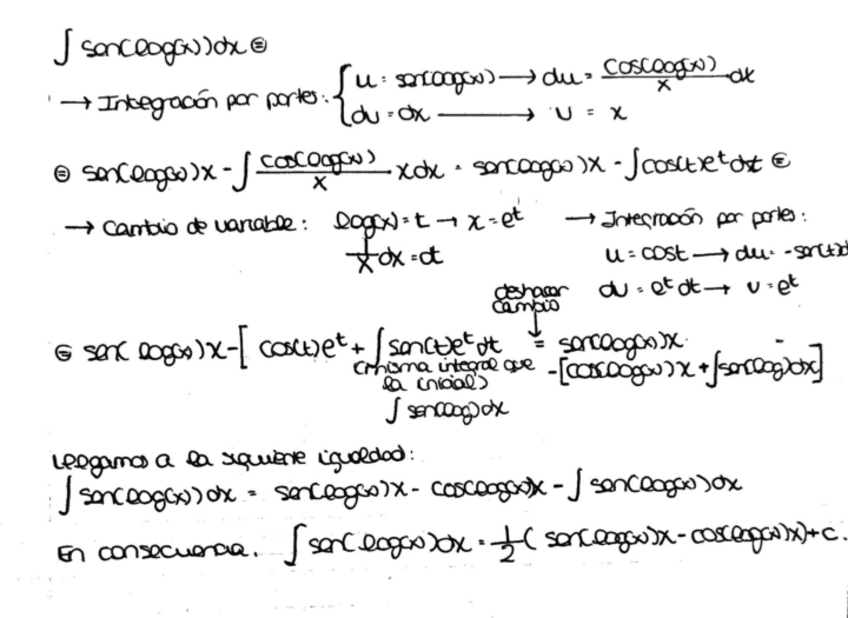 ∫ sen(log(x))dx ⊜
→ Integración por partes: { u = sen(log(x)) → du = cos(log(x))/x dx
dv = dx → v = x
⊜ sen(log(x))x - ∫ cos(log(x))/x x dx = sen(log(x))x - ∫cos(t)e^t dt ⊜
→ Cambio de variable: log(x) = t → x = e^t → Integración por partes:
1/x dx = dt u = cost → du = -sen(t)d
dv = e^t dt → v = e^t
deshacer
cambio
⊜ sen(log(x))x - [cos(t)e^t + ∫sen(t)e^t dt = sen(log(x))x
(misma integral que -[cos(log(x))x + ∫sen(log)dx]
la inicial)
∫ sen(log)dx
Llegamos a la siguiente igualdad:
∫ sen(log(x))dx = sen(log(x))x - cos(log(x))x - ∫ sen(log(x))dx
En consecuencia, ∫ sen(log(x))dx = 1/2 ( sen(log(x))x - cos(log(x))x) + C.